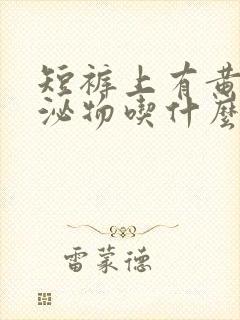 短裤上有黄
泌物喫什麼
雷蒙德